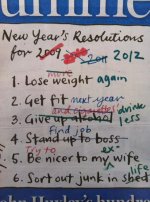 New Year's Resolutions
for 2009 2010 2011 2012
more
1. Lose weight again
2. Get fit next year
and cigarettes drink less
3. Give up alcohol
Find job
4. Stand up to boss
Try to ex-
5. Be nicer to my wife
life
6. Sort out junk in shed